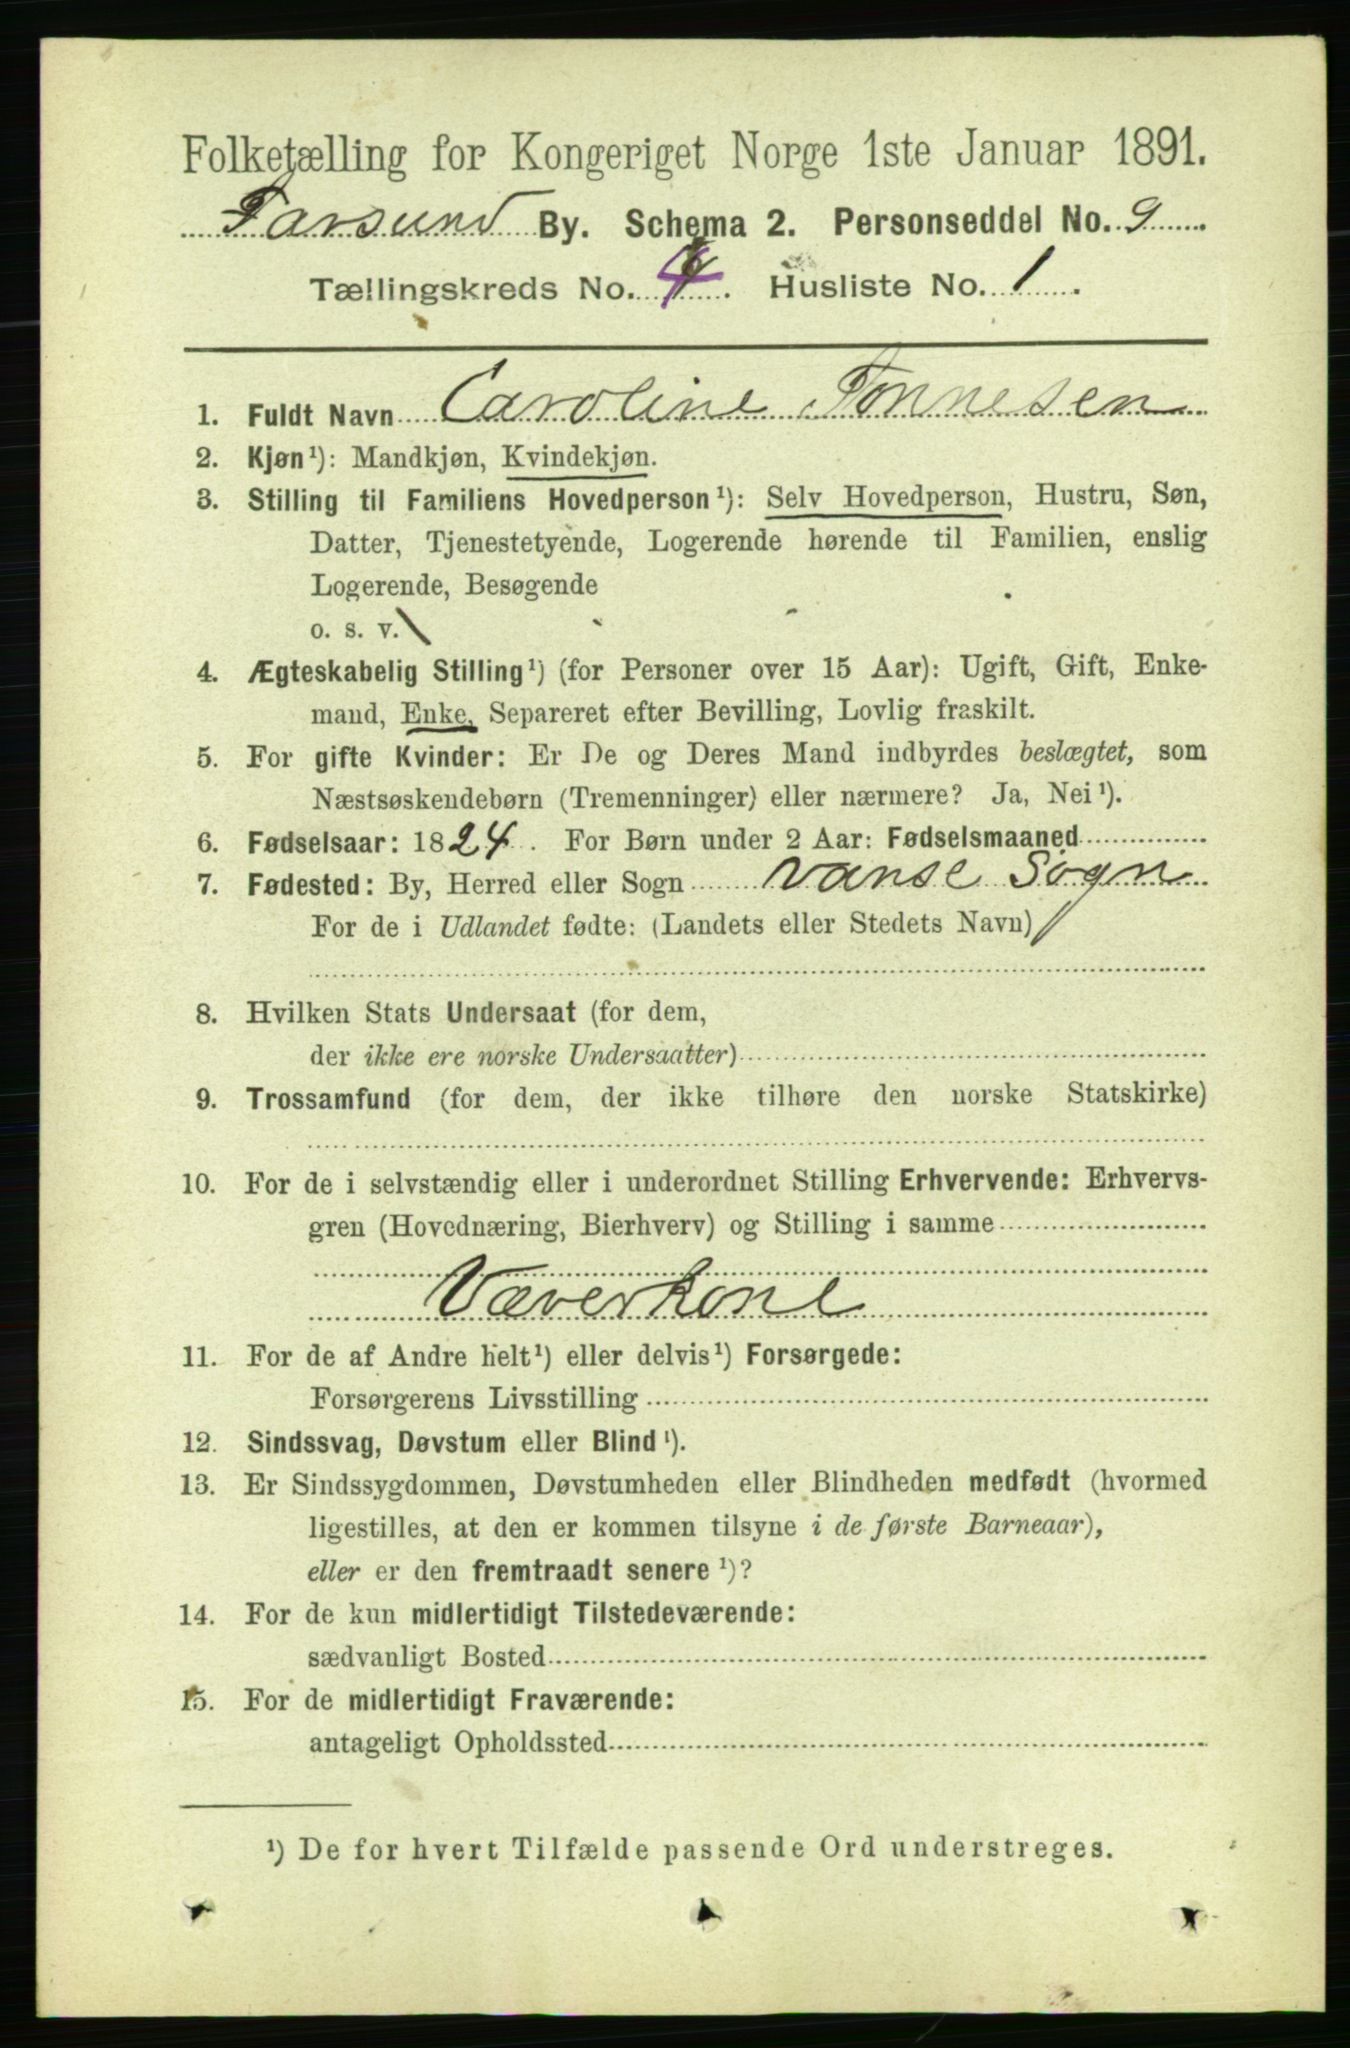 Folketælling for Kongeriget Norge 1ste Januar 1891.
Farsund By. Schema 2. Personseddel No. 9
Tællingskreds No. 4. Husliste No. 1.
1. Fuldt Navn Caroline Tønnesen
2. Kjøn¹): Mandkjøn, Kvindekjøn.
3. Stilling til Familiens Hovedperson¹): Selv Hovedperson, Hustru, Søn,
Datter, Tjenestetyende, Logerende hørende til Familien, enslig
Logerende, Besøgende
o. s. v.
4. Ægteskabelig Stilling¹) (for Personer over 15 Aar): Ugift, Gift, Enke-
mand, Enke, Separeret efter Bevilling, Lovlig fraskilt.
5. For gifte Kvinder: Er De og Deres Mand indbyrdes beslægtet, som
Næstsøskendebørn (Tremenninger) eller nærmere? Ja, Nei¹).
6. Fødselsaar: 1824. For Børn under 2 Aar: Fødselsmaaned
7. Fødested: By, Herred eller Sogn Vanse Sogn
For de i Udlandet fødte: (Landets eller Stedets Navn)
8. Hvilken Stats Undersaat (for dem,
der ikke ere norske Undersaatter)
9. Trossamfund (for dem, der ikke tilhøre den norske Statskirke)
10. For de i selvstændig eller i underordnet Stilling Erhvervende: Erhvervs-
gren (Hovednæring, Bierhverv) og Stilling i samme
Væverkone
11. For de af Andre helt¹) eller delvis¹) Forsørgede:
Forsørgerens Livsstilling
12. Sindssvag, Døvstum eller Blind¹).
13. Er Sindssygdommen, Døvstumheden eller Blindheden medfødt (hvormed
ligestilles, at den er kommen tilsyne i de første Barneaar),
eller er den fremtraadt senere¹)?
14. For de kun midlertidigt Tilstedeværende:
sædvanligt Bosted
15. For de midlertidigt Fraværende:
antageligt Opholdssted
¹) De for hvert Tilfælde passende Ord understreges.